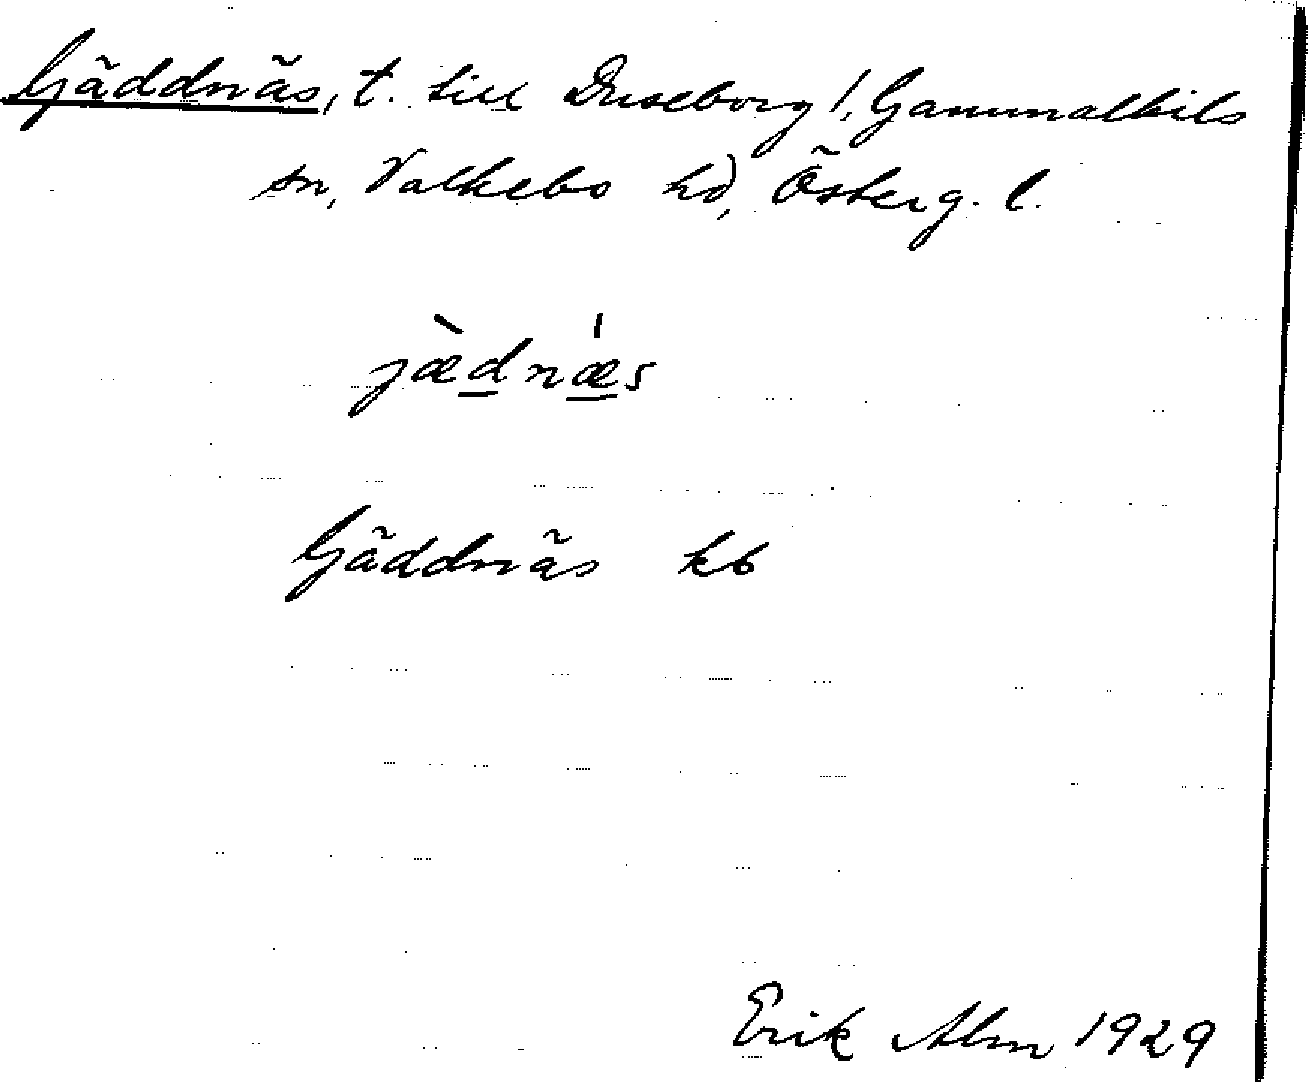 Gäddnäs, t. till Duseborg 1, Gammalkils
sn, Valkebo hd, Österg. l.
jæ̀dnǽs
Gäddnäs kb
Erik Alm 1929